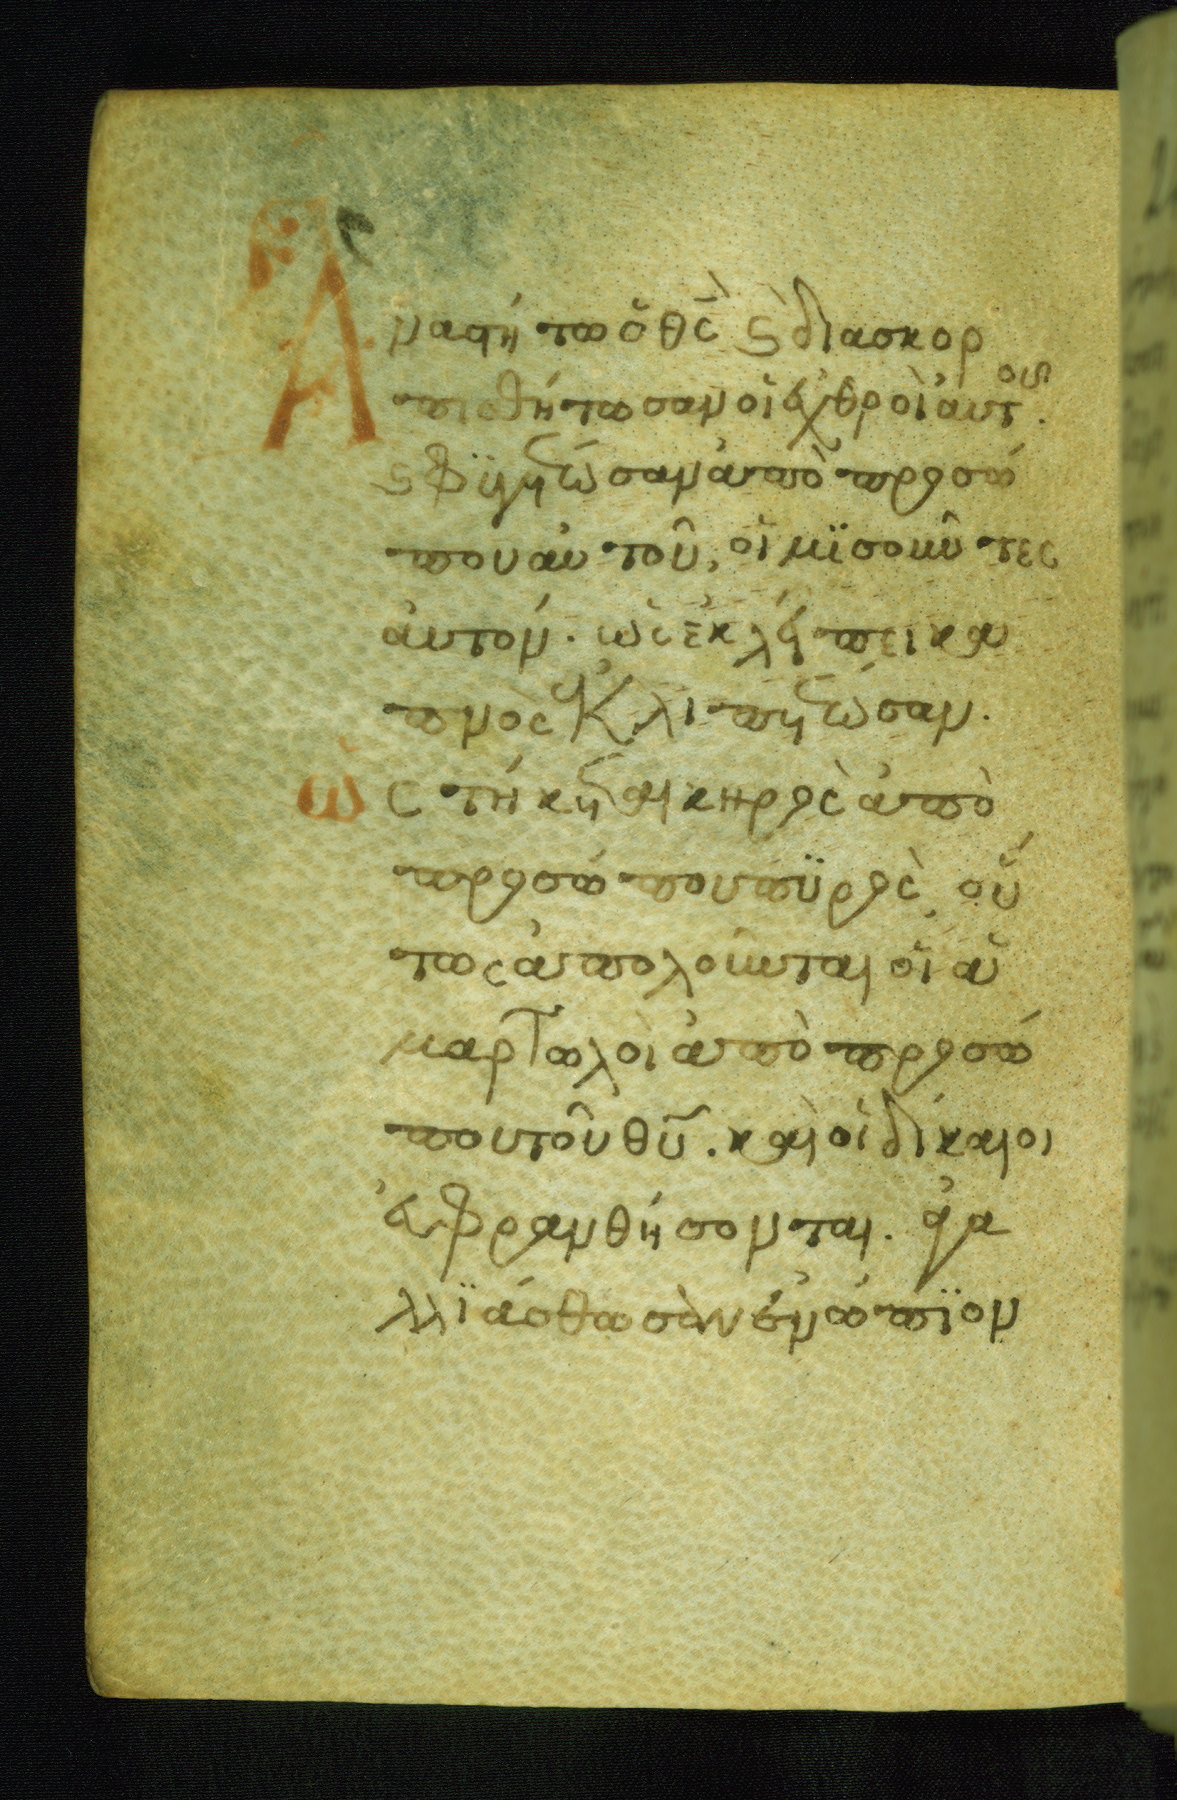 Ἀναστήτω ὁ θς̅ ϛ διασκορ
πισθήτωσαν οἱ ἐχθροὶ ἀυτοῦ.
ϛ φϋγέτωσαν ἀπὸ προσώ
που αὐτοῦ, οἱ μϊσοῦντες
ἀυτόν. ὡς ἐκλείπει κα
πνὸς ἐκλιπέτωσαν.
ὡς τήκεται κηρὸς ἀπὸ
προσώπου πϋρὸς οὕ
τως ἀπολοῦνται οἱ ἁ
μαρτωλοὶ ἀπὸ προσώ
που τοῦ θυ̅. καὶ οἱ δίκαιοι
ἐυφρανθήτωσαν. ἀγα
λλϊάσθωσαν ἐνώπϊον